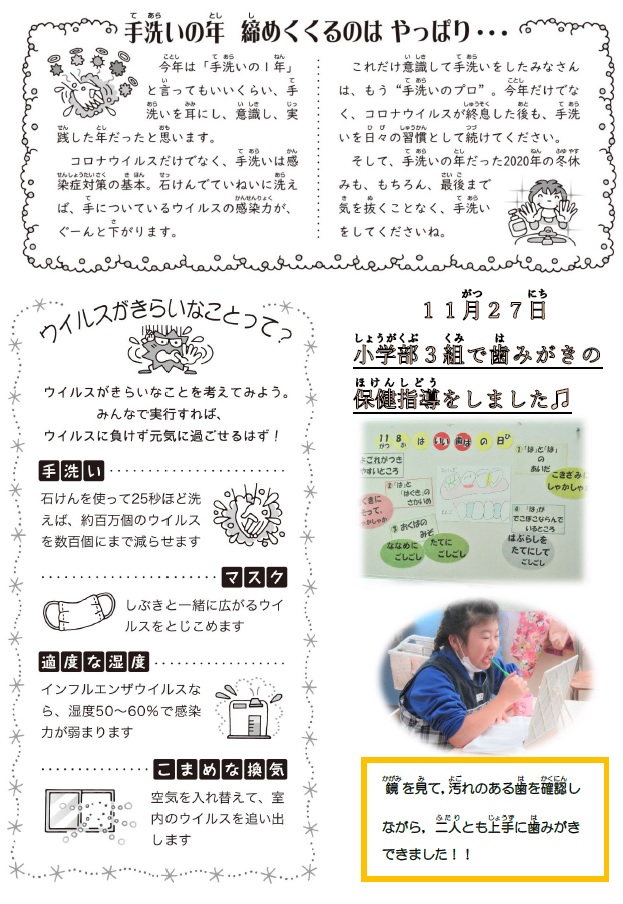 手洗いの年 締めくくるのは やっぱり・・・
今年は「手洗いの1年」
と言ってもいいくらい、手
洗いを耳にし、意識し、実
践した年だったと思います。
コロナウイルスだけでなく、手洗いは感
染症対策の基本。石けんでていねいに洗え
ば、手についているウイルスの感染力が、
ぐーんと下がります。
これだけ意識して手洗いをしたみなさん
は、もう“手洗いのプロ”。今年だけでな
く、コロナウイルスが終息した後も、手洗
いを日々の習慣として続けてください。
そして、手洗いの年だった2020年の冬休
みも、もちろん、最後まで
気を抜くことなく、手洗い
をしてくださいね。
ウイルスがきらいなことって?
ウイルスがきらいなことを考えてみよう。
みんなで実行すれば、
ウイルスに負けず元気に過ごせるはず!
手洗い
石けんを使って25秒ほど洗
えば、約百万個のウイルス
を数百個にまで減らせます
マスク
しぶきと一緒に広がるウイ
ルスをとじこめます
適度な湿度
インフルエンザウイルスな
ら、湿度50～60%で感染
力が弱まります
こまめな換気
空気を入れ替えて、室
内のウイルスを追い出
します
11月27日
小学部3組で歯みがきの
保健指導をしました♫
11がつ 8か は いい 歯は の 日ひ
よごれがつき
やすいところ
①「は」と「は」
の
あいだ
こきざみに
しゃかしゃか
②「は」と
「はぐき」の
さかいめ
③おくばの
みぞ
ななめに
ごしごし
たてに
ごしごし
④「は」が
でこぼこならんで
いるところ
はぶらしを
たてにして
ごしごし
鏡を見て，汚れのある歯を確認し
ながら，二人とも上手に歯みがき
できました！！